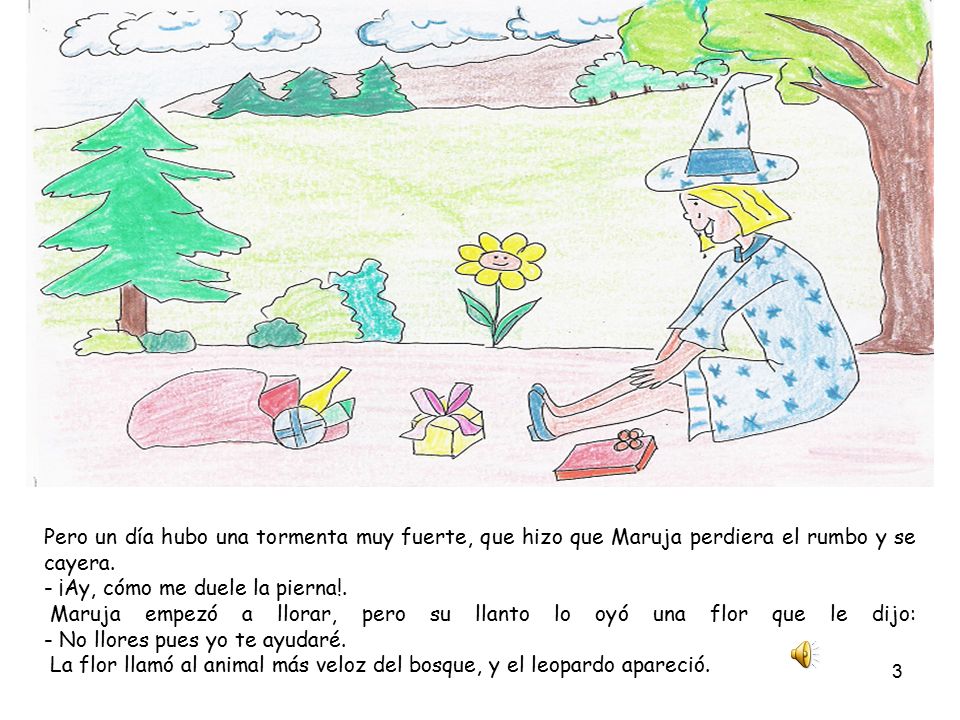 Pero un día hubo una tormenta muy fuerte, que hizo que Maruja perdiera el rumbo y se
cayera.
- ¡Ay, cómo me duele la pierna!.
Maruja empezó a llorar, pero su llanto lo oyó una flor que le dijo:
- No llores pues yo te ayudaré.
La flor llamó al animal más veloz del bosque, y el leopardo apareció.
3